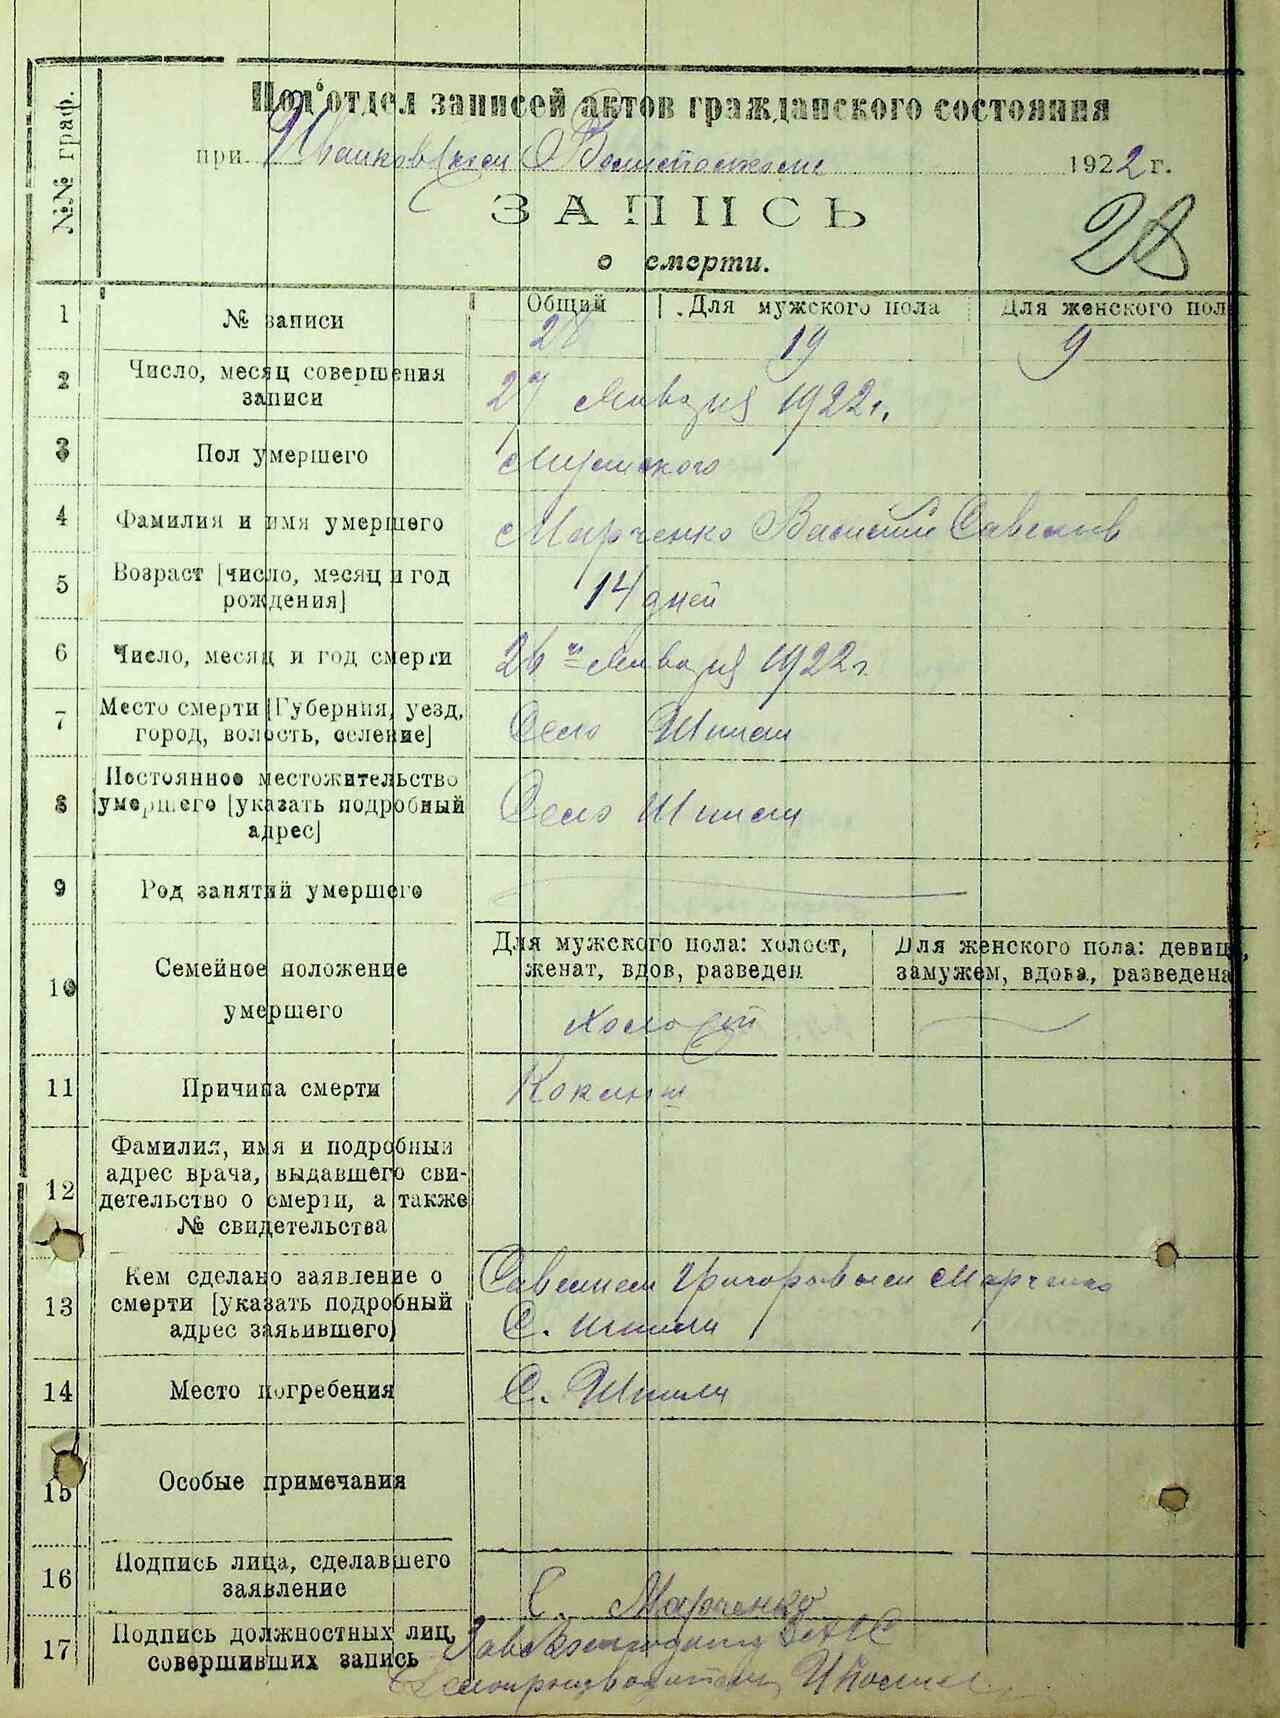 №№ граф.
Под'отдел записей актов гражданского состояния
при Иванковском Волисполкоме 1922 г.
ЗАПИСЬ
о смерти.
28
1 № записи Общий Для мужского пола Для женского пол
28 19 9
2 Число, месяц совершения записи 27 Января 1922 г.
3 Пол умершего Мужского
4 Фамилия и имя умершего Марченко Василий Савельев
5 Возраст [число, месяц и год рождения] 14 дней
6 Число, месяц и год смерти 26 Января 1922 г
7 Место смерти [Губерния, уезд, город, волость, селение] Село Шпили
8 Постоянное местожительство умершего [указать подробный адрес] Село Шпили
9 Род занятий умершего
10 Семейное положение умершего
Для мужского пола: холост, женат, вдов, разведен
Для женского пола: девиц, замужем, вдова, разведена
Холостой
11 Причина смерти Коклюш
12 Фамилия, имя и подробный адрес врача, выдавшего свидетельство о смерти, а также № свидетельства
13 Кем сделано заявление о смерти [указать подробный адрес заявившего] Савелием Григоровым Марченко
С. Шпили
14 Место погребения С. Шпили
15 Особые примечания
16 Подпись лица, сделавшего заявление С. Марченко
17 Подпись должностных лиц, совершивших запись
Делопроизводитель